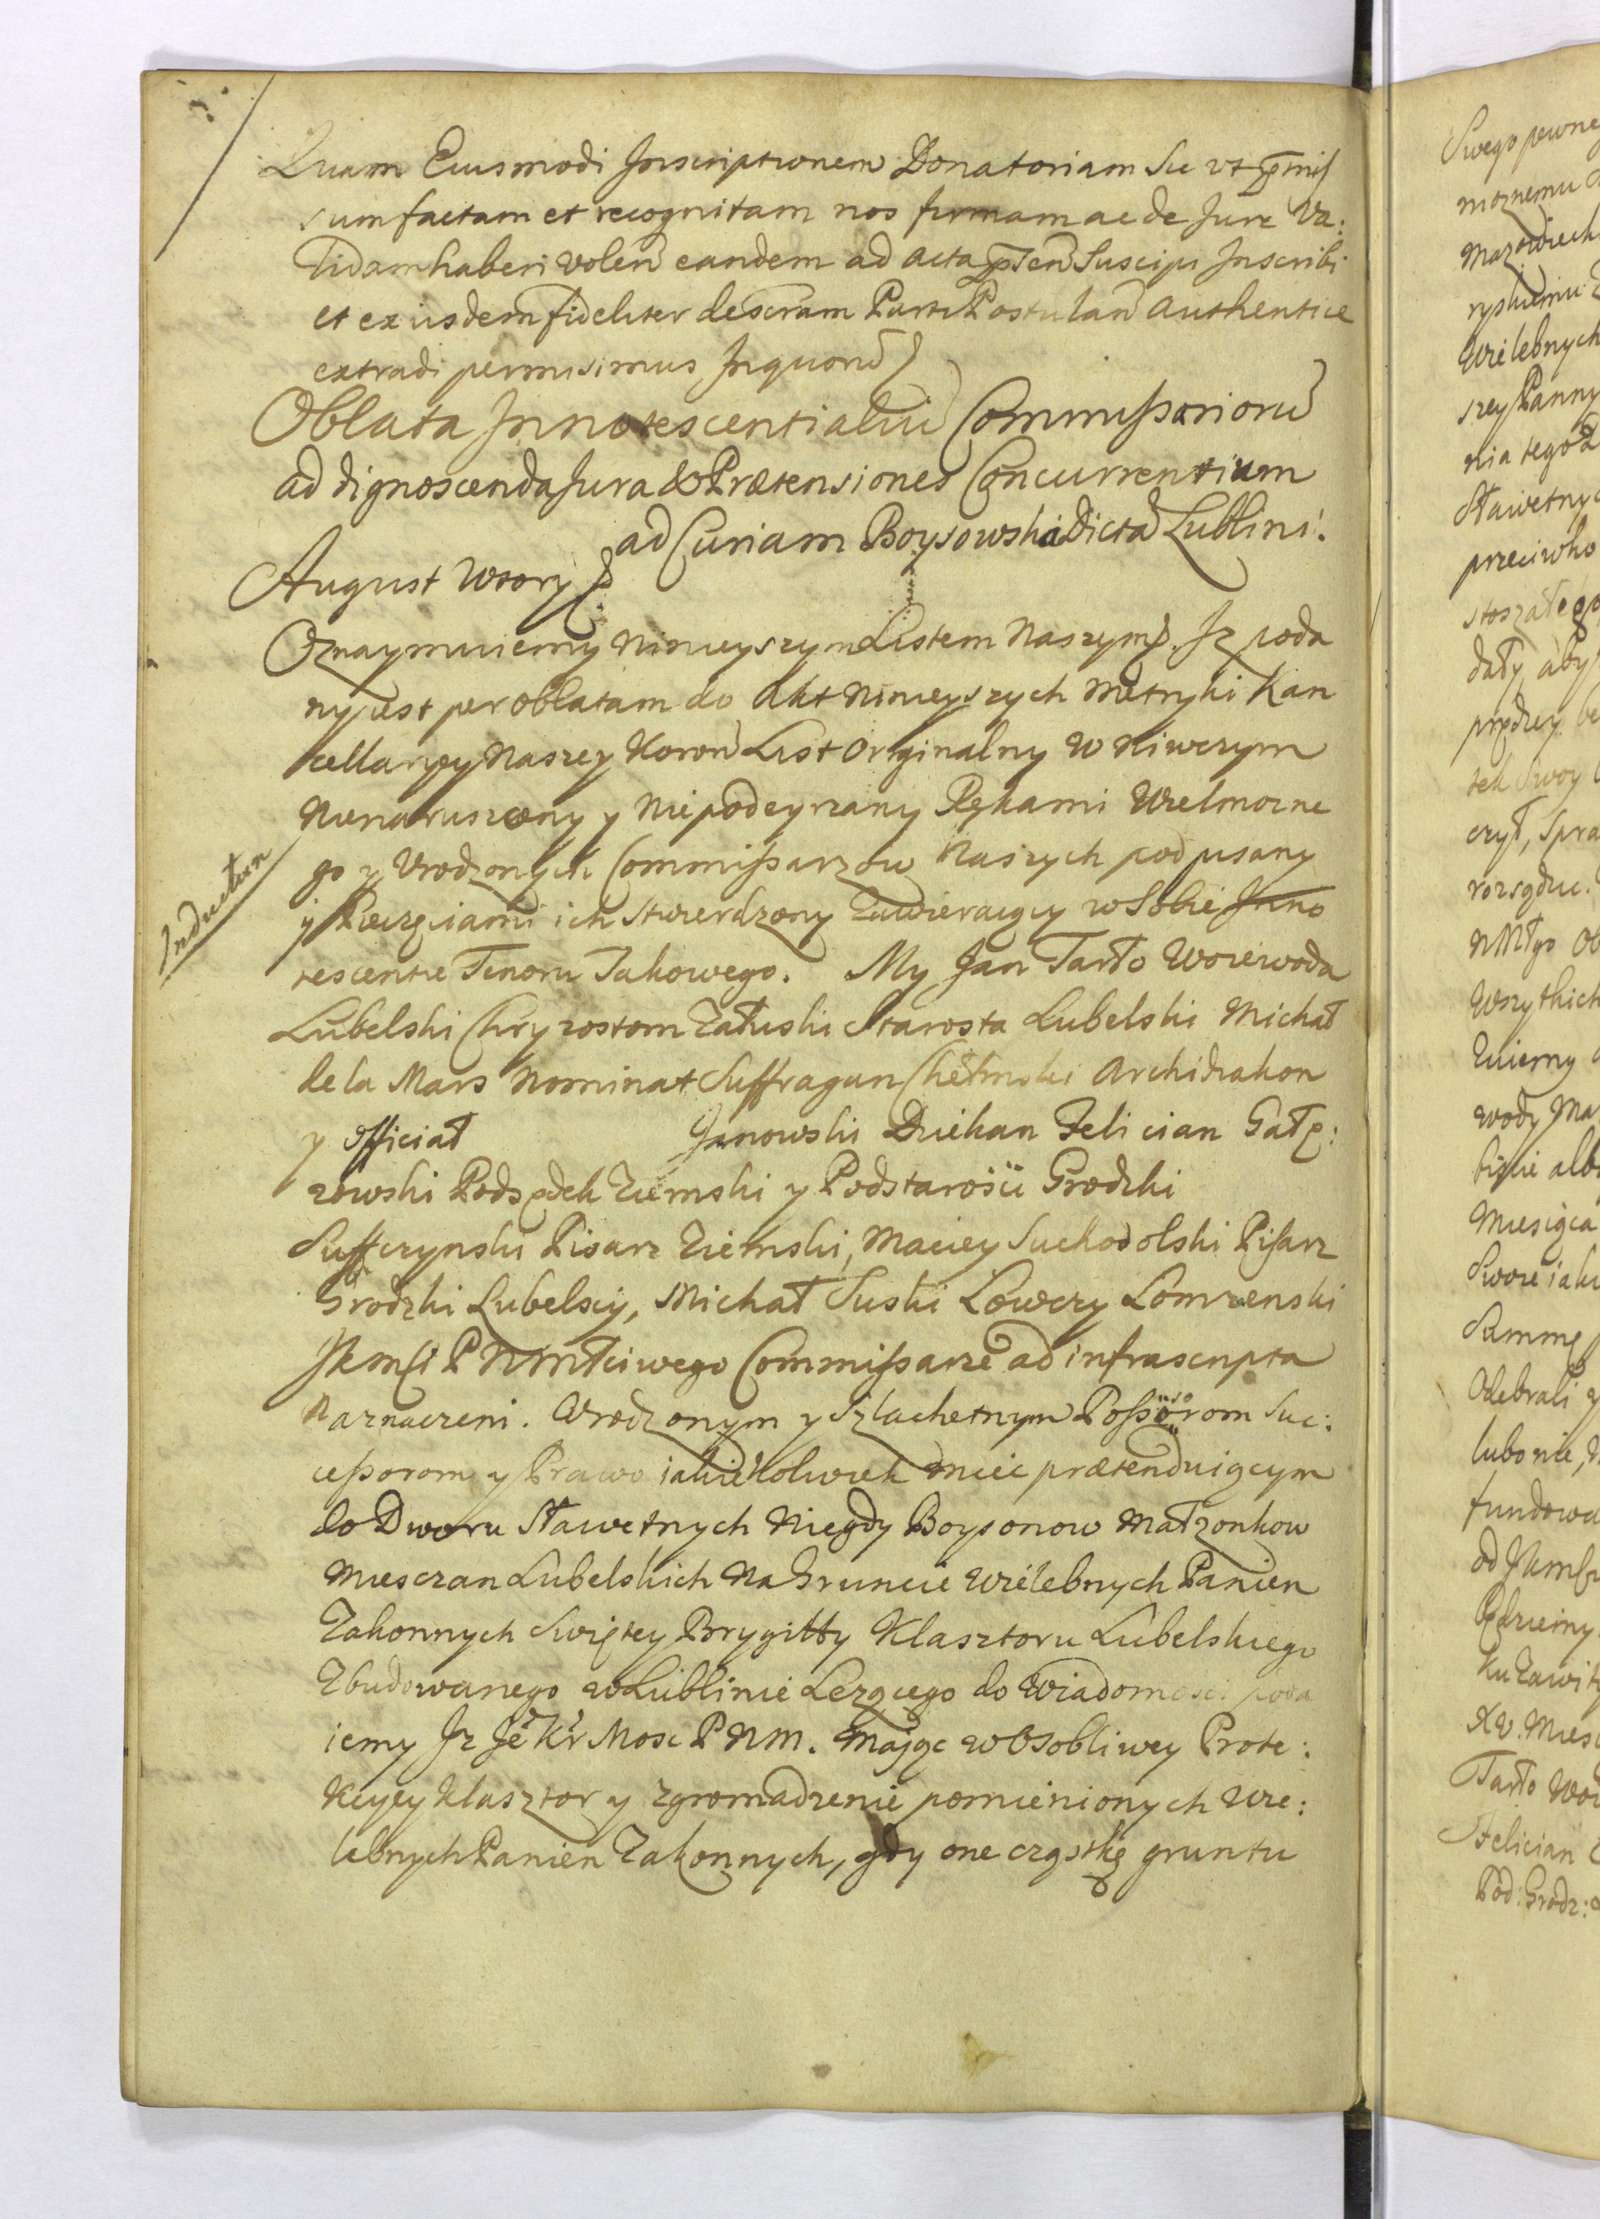 Quam Eiusmodi Inscriptionem Donatoriam Sic vt prmis
sum factam et recognitam nos firmam ac de Jure Va:
lidam haberi volen eandem ad acta pnten Suscipi Inscribi
et ex iisdem fideliter descram Parti Postulan authentice
extradi permisimus Inquoru
Oblata Innotescentialiu Commissarioru
ad dignoscenda Jura & Prætensiones Concurrentium
ad Curiam Boysowska Dicta Lublini.
August wtory
Oznaymuiemy ninieyszym Listem Naszym. Iz poda
ny jest per oblatam do Akt ninieyszych Metryki Kan
cellaryey Naszey Koron List Orginalny w niwczym
Nienaruszony y Niepodeyrzany Rękami Wielmozne
go y Urodzonych Commissarzow Naszych podpisany
y Pieczęciami ich stwierdzony Zawieraiący w Sobie Inno
tescentie Tenoru Takowego. My Jan Tarło Woiewoda
Lubelski Chryzostom Załuski Starosta Lubelski Michał
de la Mars Nominat Suffragan Chełmski Archidiakon
y Officiał Janowski Dziekan Felician Gałę:
zowski Podsędek Ziemski y Podstarosci Grodzki
Suffczynski Pisarz Ziemski, Maciey Suchodolski Pisarz
Grodzki Lubelscy, Michał Suski Łowczy Łomzenski
JKmsci P N Miłciwego Commissarze ad infrascripta
Naznaczeni. Urodzonym y Szlachetnym Possorom Suc:
cessorom y Prawo iakiekolwiek miec prætenduiącym
do Dworu Sławetnych Niegdy Boysonow Małzonkow
Miesczan Lubelskich Na Gruncie Wielebnych Panien
Zakonnych Swiętey Brygitty Klasztoru Lubelskiego
Zbudowanego w Lublinie Lezącego do Wiadomosci poda
iemy Iz Je Kr Mosc P N M. Maiąc w Osobliwey Prote:
kcyey klasztor y zgromadzenie pomienionych Wie:
lebnych Panien Zakonnych, gdy one cząstkę gruntu
Inductum